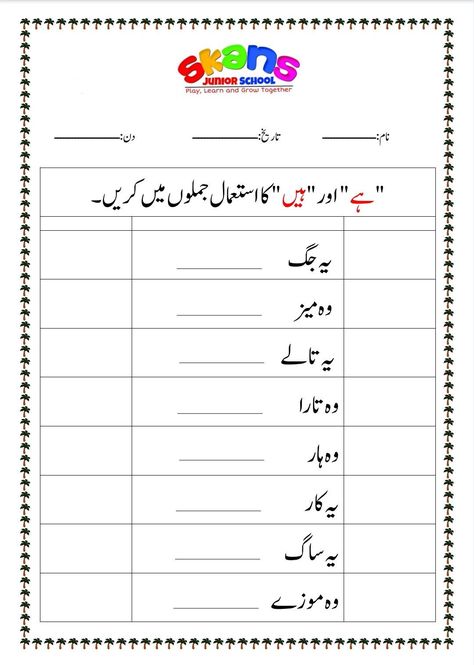 Skans
JUNIOR SCHOOL
Play, Learn and Grow Together
نام:__________ تاریخ:__________ دن:__________
"ہے" اور "ہیں" کا استعمال جملوں میں کریں۔
یہ جگ __________
وہ میز __________
یہ تالے __________
وہ تارا __________
وہ ہار __________
یہ کار __________
یہ ساگ __________
وہ موزے __________